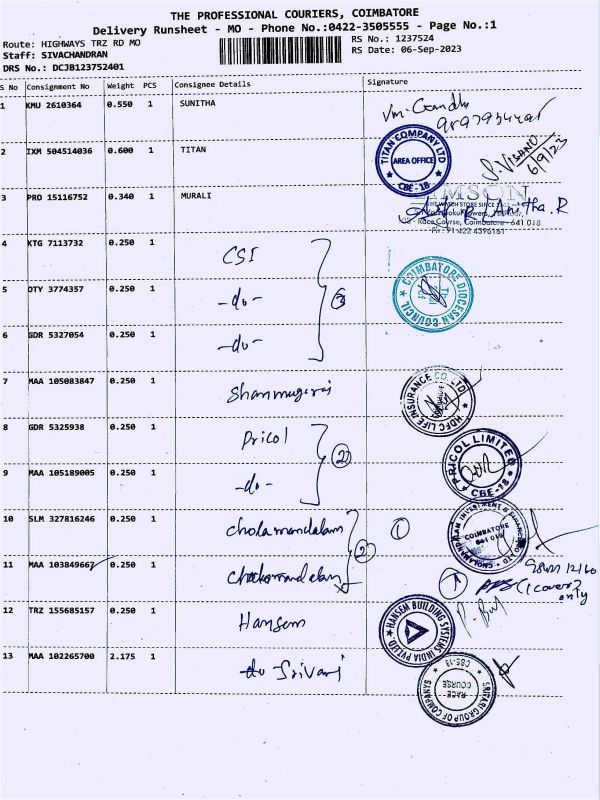 THE PROFESSIONAL COURIERS, COIMBATORE
Delivery Runsheet - MO - Phone No.:0422-3505555 - Page No.:1
Route: HIGHWAYS TRZ RD MO
RS No.: 1237524
Staff: SIVACHANDRAN
RS Date: 06-Sep-2023
DRS No.: DCJB123752401
S No Consignment No Weight PCS Consignee Details Signature
1 KMU 2610364 0.550 1 SUNITHA
2 IXM 504514036 0.600 1 TITAN
TITAN COMPANY LTD
AREA OFFICE
CBE-18
6/9/23
3 PRO 15116752 0.340 1 MURALI
Anitha.R
Race Course, Coimbatore - 641 018
Ph : 91 422 4396161
4 KTG 7113732 0.250 1 CSI
5 OTY 3774357 0.250 1 -do-
3
COIMBATORE DIOCESAN COUNCIL
6 GDR 5327054 0.250 1 -do-
7 MAA 105083847 0.250 1
HDFC LIFE INSURANCE CO. LTD
8 GDR 5325938 0.250 1 Pricol
2
PRICOL LIMITED
CBE-18
9 MAA 105189005 0.250 1 -do-
10 SLM 327816246 0.250 1 cholamandalam
1
2
COIMBATORE
641 018
11 MAA 103849667 0.250 1
(1 cover)
only
12 TRZ 155685157 0.250 1 Hansem
HANSEM BUILDING SYSTEMS INDIA PVT LTD.
13 MAA 102265700 2.175 1 do Srivari
SRIVARI GROUP OF COMPANYS
RACE
COURSE
CBE-18